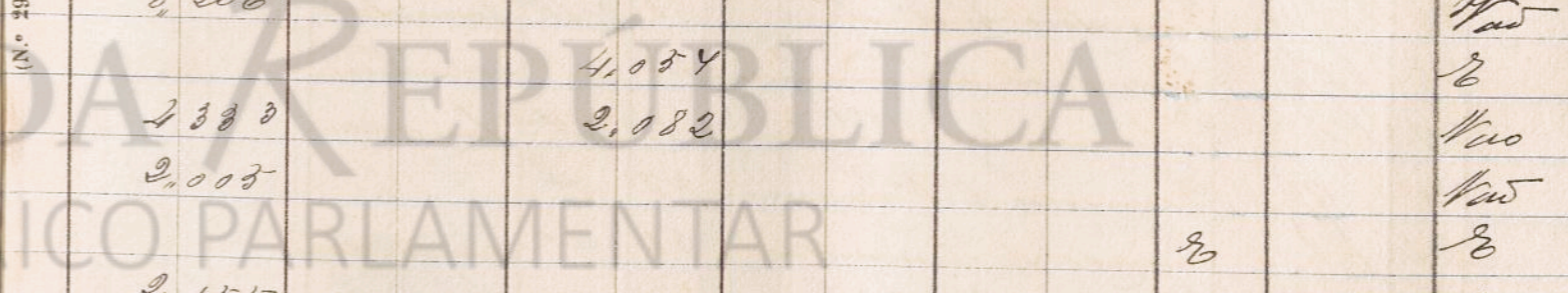 (N.º 29
Não
4,054 É
4333 2,082 Não
2,005 Não
É É
DA REPÚBLICA
ICO PARLAMENTAR